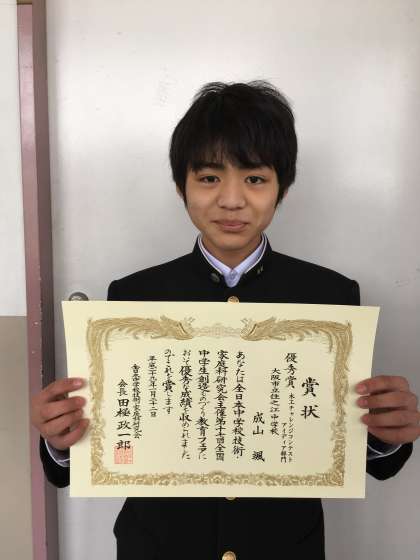 賞状
優秀賞 木工チャレンジコンテスト
アイディア部門
大阪市立住之江中学校
成山 颯
あなたは全日本中学校技術・
家庭科研究会主催第十七回全国
中学生創造ものづくり教育フェアに
おいて優秀な成績を収められました
のでこれを賞します
全日本中学校技術・家庭科研究会
会長 田極 政一郎